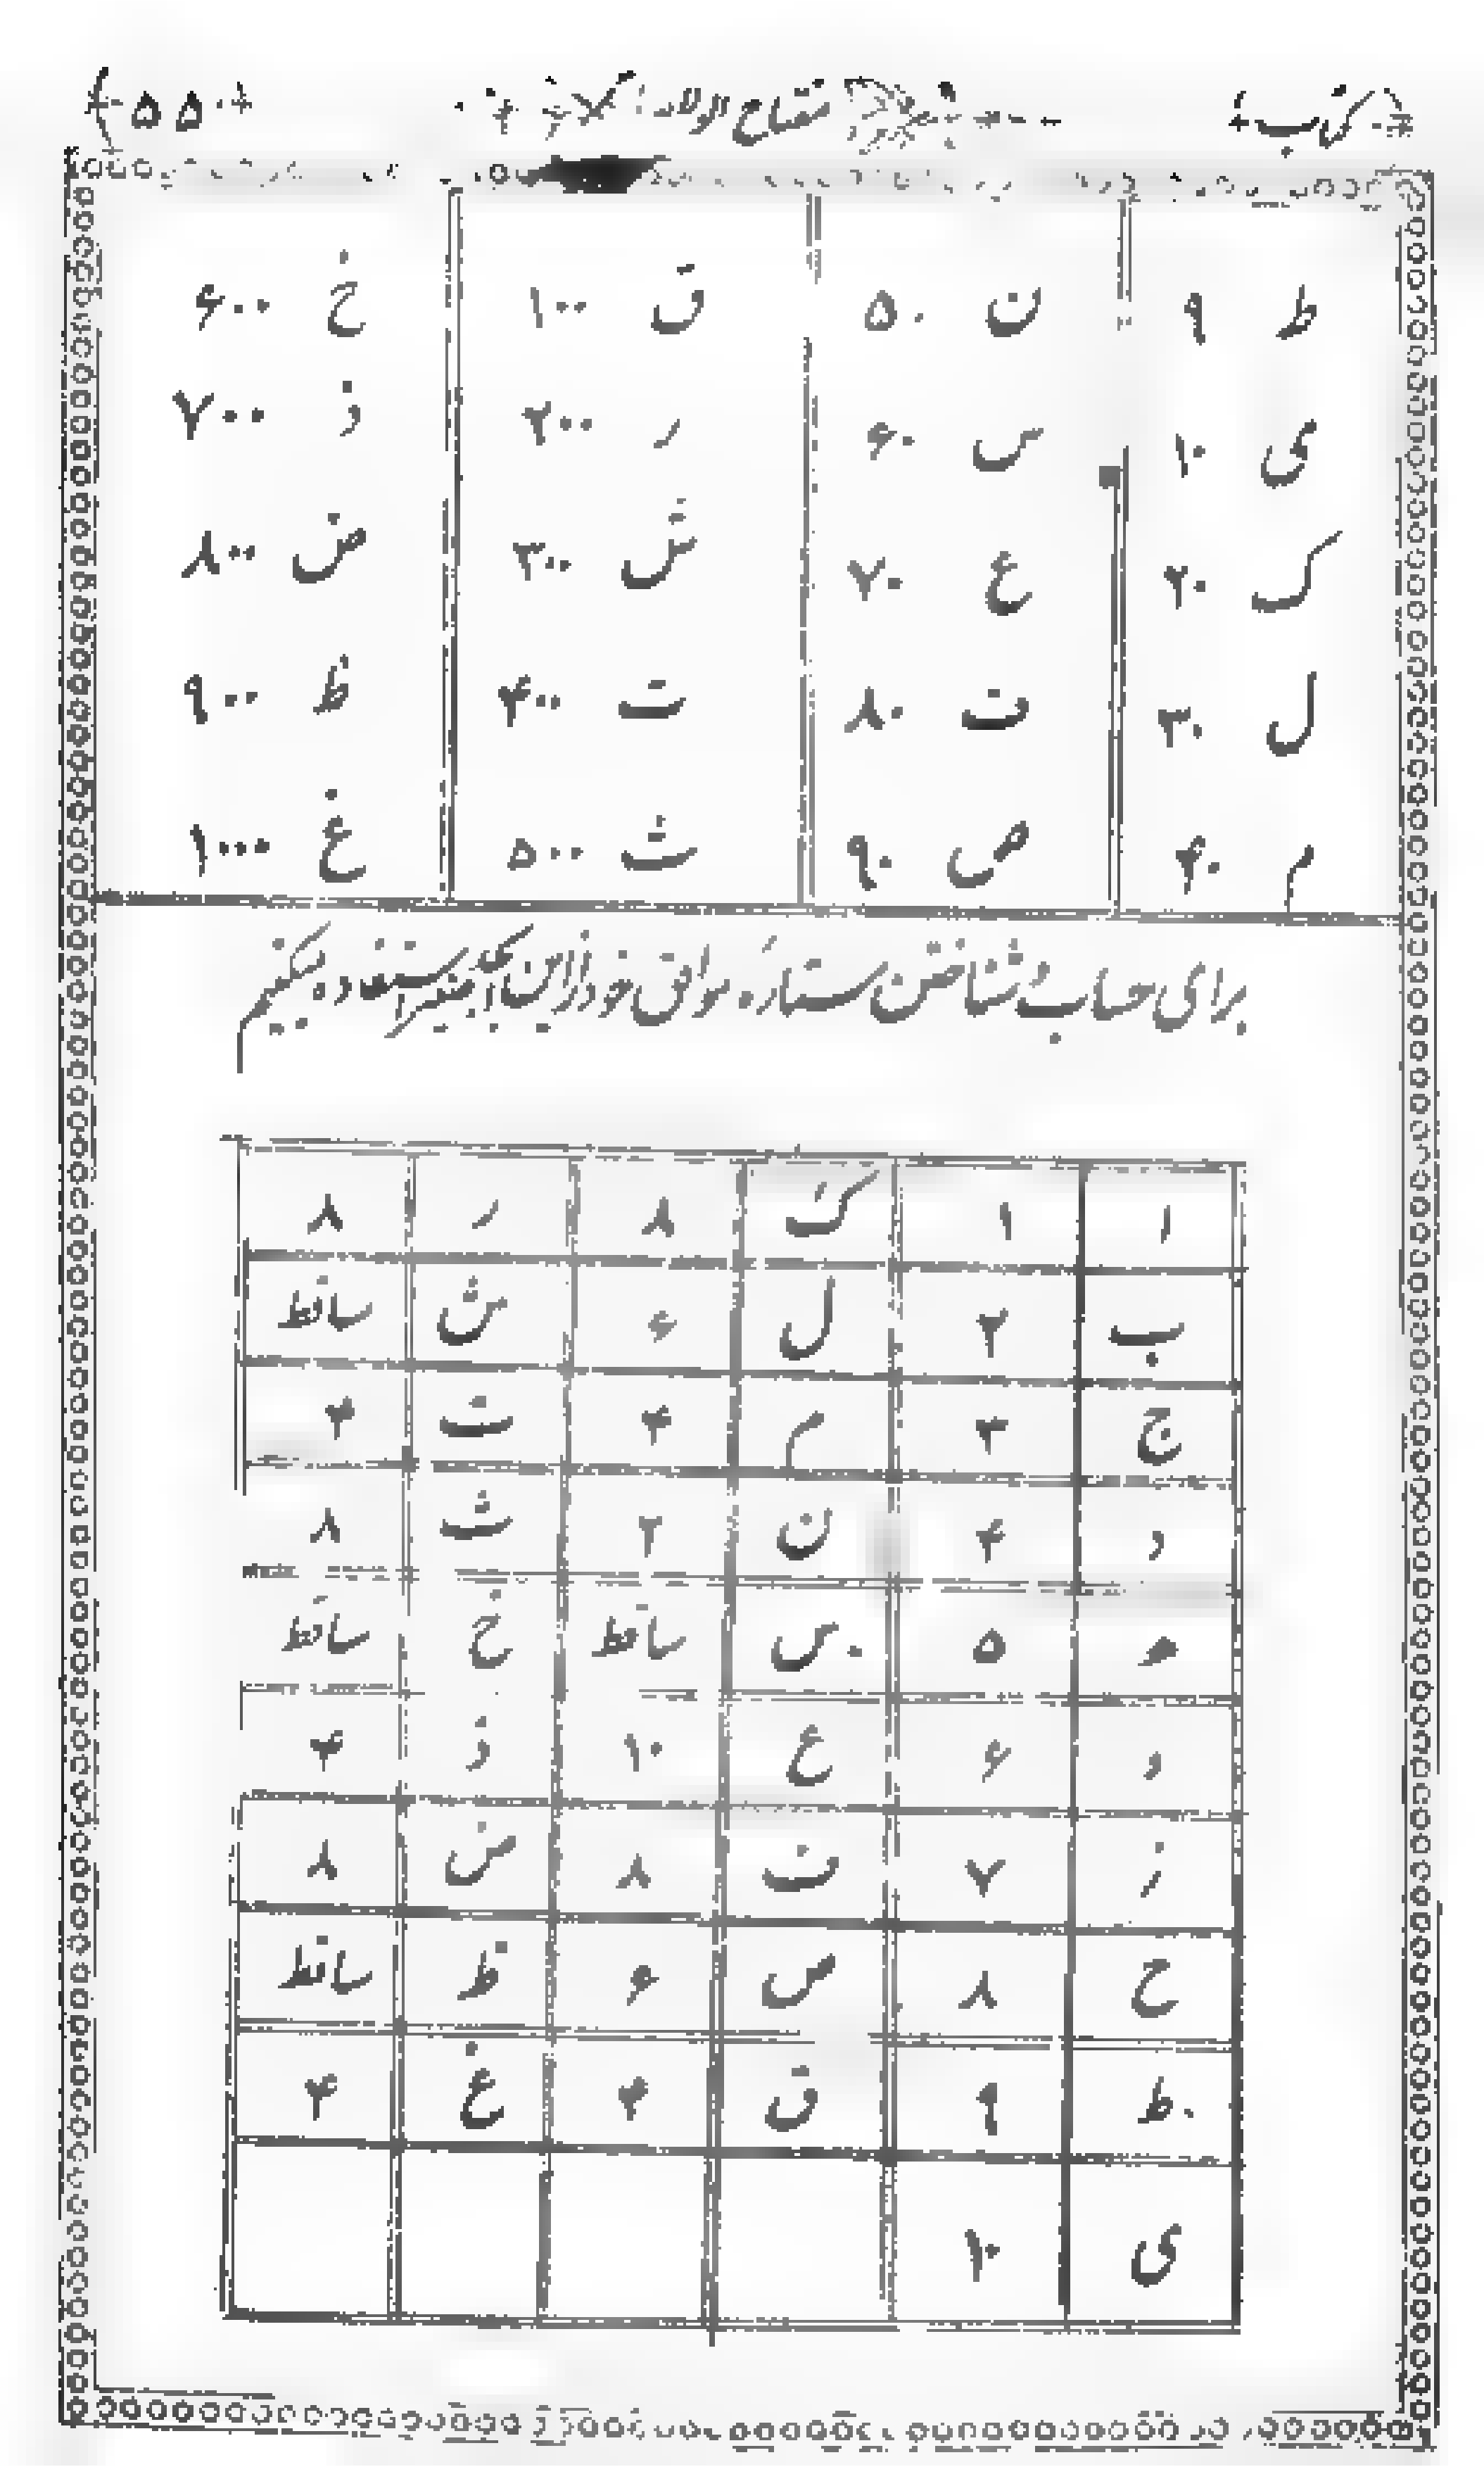 کتاب مفتاح الولاد ۵۵
ط ۹ ن ۵۰ ق ۱۰۰ خ ۶۰۰
ی ۱۰ س ۶۰ ر ۲۰۰ ذ ۷۰۰
ک ۲۰ ع ۷۰ ش ۳۰۰ ض ۸۰۰
ل ۳۰ ف ۸۰ ت ۴۰۰ ظ ۹۰۰
م ۴۰ ص ۹۰ ث ۵۰۰ غ ۱۰۰۰
برای حساب و شناختن ستارهٔ موافق خود از این ابجد استفاده میکنیم
ا ۱ ک ۸ ر ۸
ب ۲ ل ۶ ش ساقط
ج ۳ م ۴ ت ۴
د ۴ ن ۲ ث ۸
ه ۵ س ساقط خ ساقط
و ۶ ع ۱۰ ذ ۴
ز ۷ ف ۸ ض ۸
ح ۸ ص ۶ ظ ساقط
ط ۹ ق ۴ غ ۴
ی ۱۰